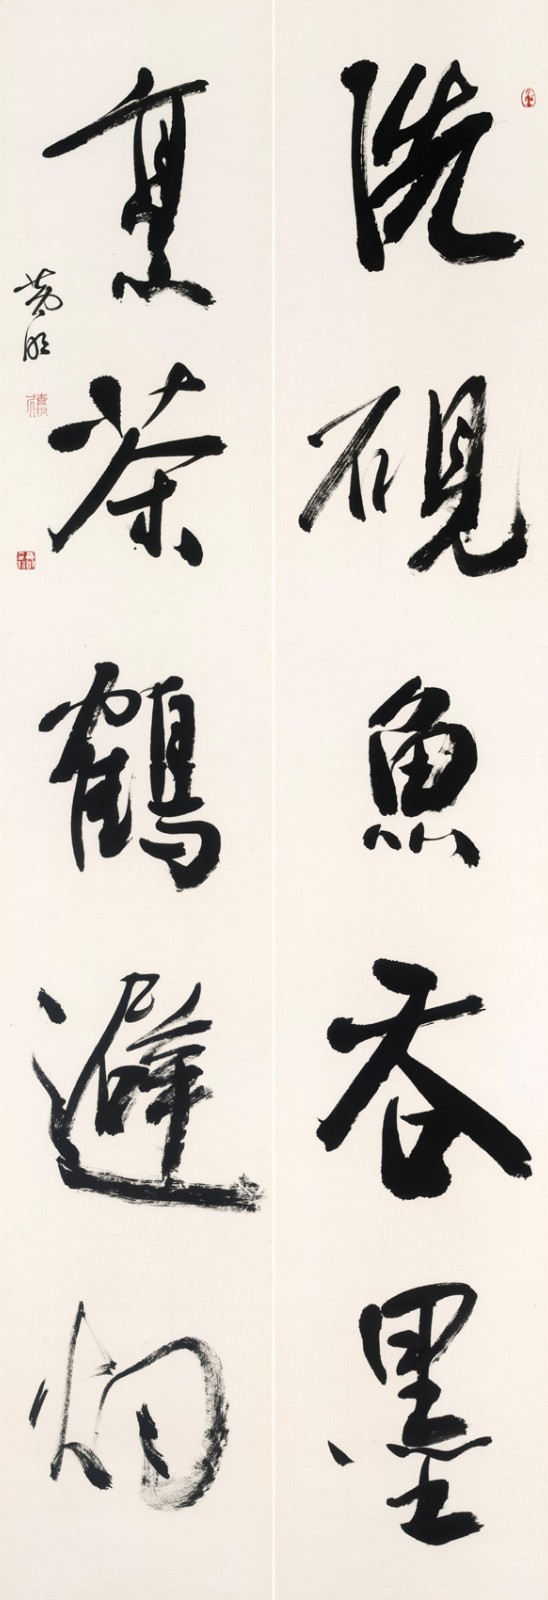 洗硯魚吞墨
烹茶鶴避烟